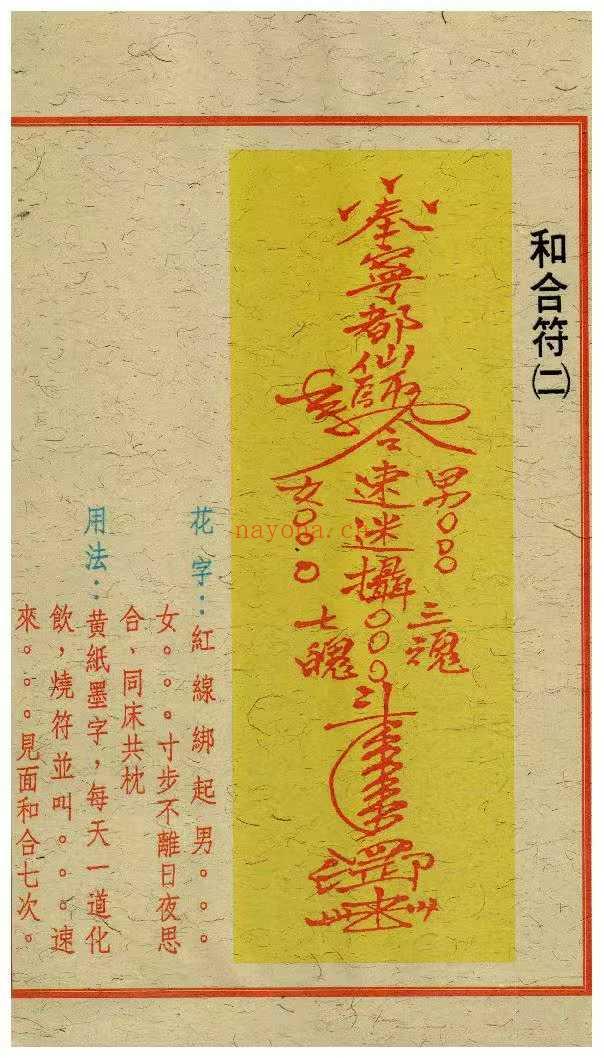 和合符(二)
奉寧都仙
合
男○○
速迷攝○○○
女○○○
三魂
七魄
斗
花字：紅線綁起男。。。
女。。。寸步不離日夜思
合、同床共枕
用法：黄紙墨字，每天一道化
飲，燒符並叫。。。速
來。。。見面和合七次。